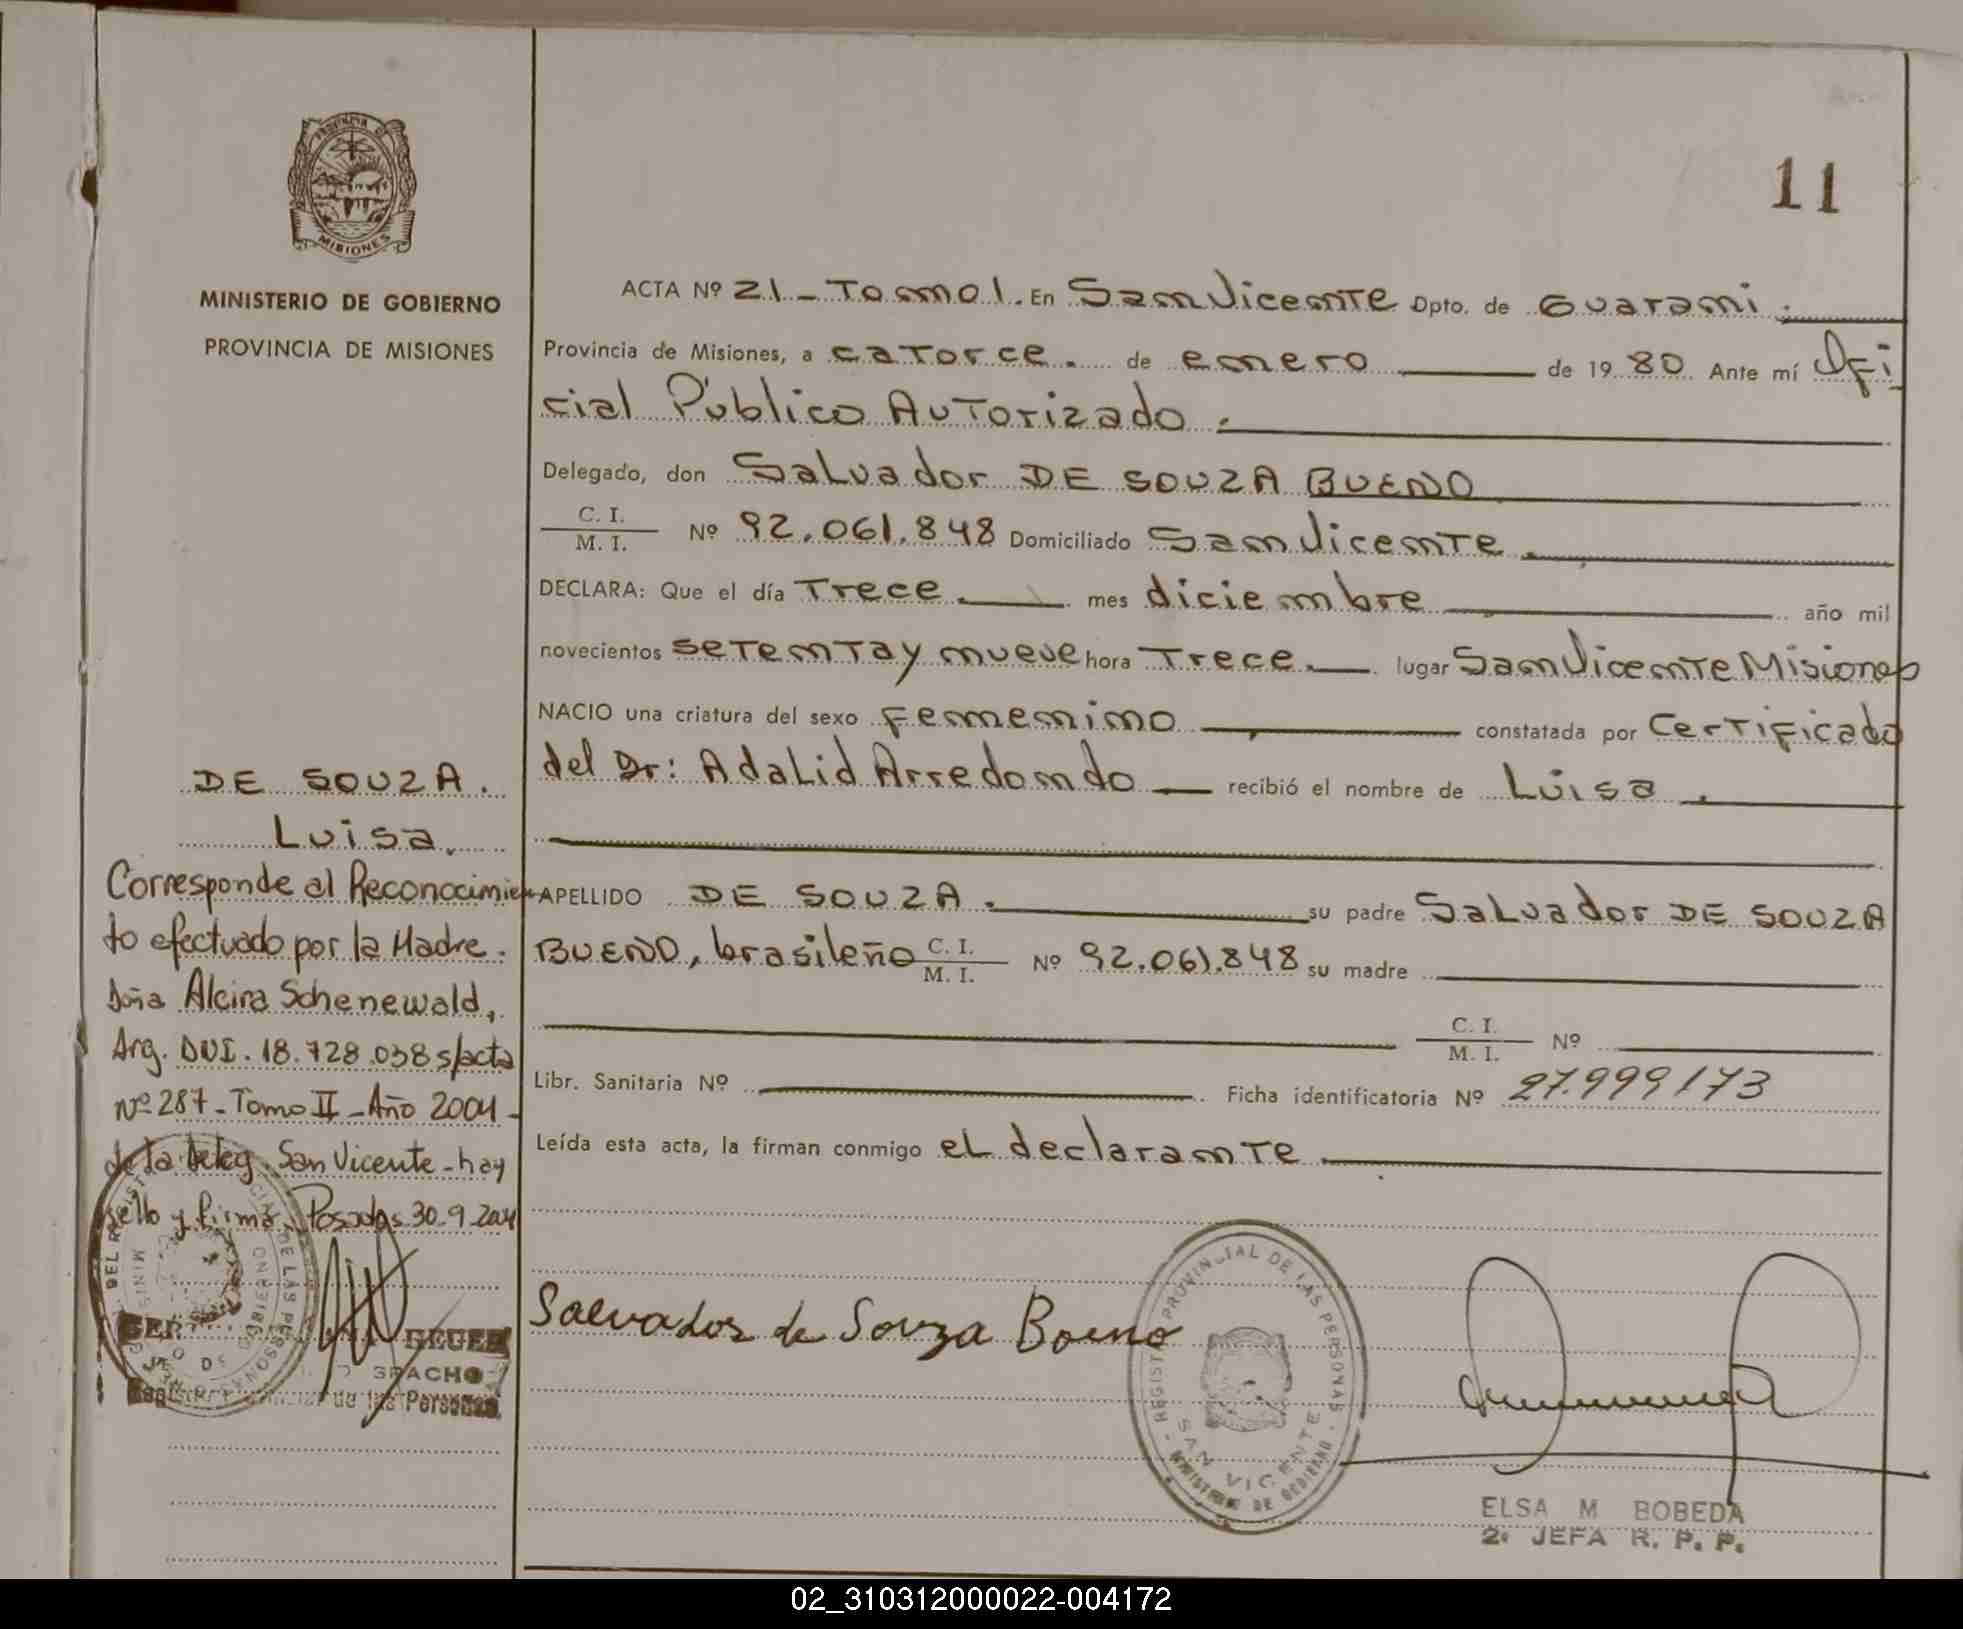 11
PROVINCIA DE
MISIONES
MINISTERIO DE GOBIERNO
PROVINCIA DE MISIONES
ACTA Nº 21 - Tomo 1. En San Vicente Dpto. de Guarani.
Provincia de Misiones, a catorce. de enero de 19 80 Ante mí Ofi
cial Público Autorizado.
Delegado, don Salvador DE SOUZA BUENO
C. I.
M. I. Nº 92.061.848 Domiciliado San Vicente.
DECLARA: Que el día Trece. mes diciembre año mil
novecientos setenta y nueve hora Trece. lugar San Vicente Misiones
NACIO una criatura del sexo femenino constatada por Certificado
del Dr: Adalid Arredondo recibió el nombre de Luisa.
APELLIDO DE SOUZA. su padre Salvador DE SOUZA
BUENO, brasileño C. I.
M. I. Nº 92.061.848 su madre
C. I.
M. I. Nº
Libr. Sanitaria Nº Ficha identificatoria Nº 27.999173
Leída esta acta, la firman conmigo el declarante
DE SOUZA.
Luisa.
Corresponde al Reconocimien
to efectuado por la Madre.
doña Alcira Schenewald,
Arg. DNI. 18.728.038 s/acta
Nº 287 - Tomo II - Año 2004 -
de la Deleg. San Vicente - hay
sello y firma. Posadas 30.9.2004
Salvador de Souza Boeno
REGISTRO PROVINCIAL DE LAS PERSONAS
SAN VICENTE
MINISTERIO DE GOBIERNO
ELSA M BOBEDA
2ª JEFA R. P. P.
de las Personas
02_310312000022-004172